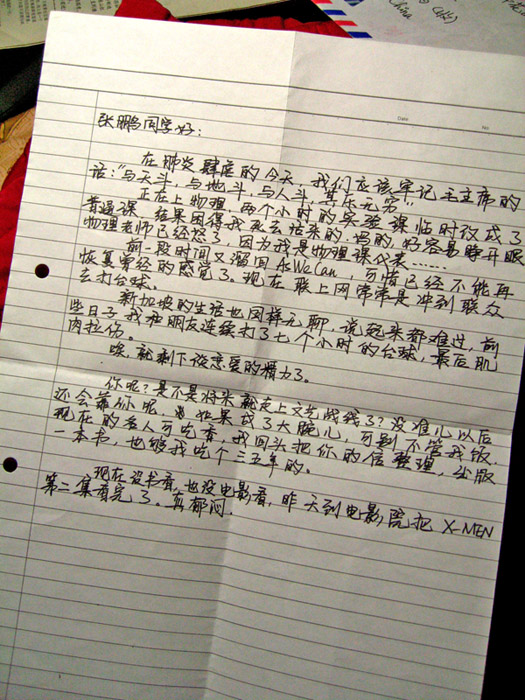 China
Date
No
张鹏同学好：
在肺炎肆虐的今天，我们应该牢记毛主席的
话："与天斗，与地斗，与人斗，其乐无穷"
正在上物理，两个小时的实验课临时改成了
普通课，结果困得我死去活来的，妈的，好容易睁开眼
物理老师已经怒了，因为我是物理课代表……
前一段时间又溜回AsWeCan，可惜已经不能再
恢复曾经的感觉了。现在联上网常常是冲到联众
去打台球。
新加坡的生活也同样无聊，说起来都难过，前
些日子我和朋友连续打了七个小时的台球，最后肌
肉拉伤。
唉，就剩下谈恋爱的精力了。
你呢？是不是将来就走上文艺战线了？没准儿以后
还会靠你呢，如果成了大腕儿，可别不管我饭，
现在的名人可吃香，我回头把你的信整理，出版
一本书，也够我吃个三五年的。
现在没书看，也没电影看，昨天到电影院把X-MEN
第二集看完了。真郁闷。